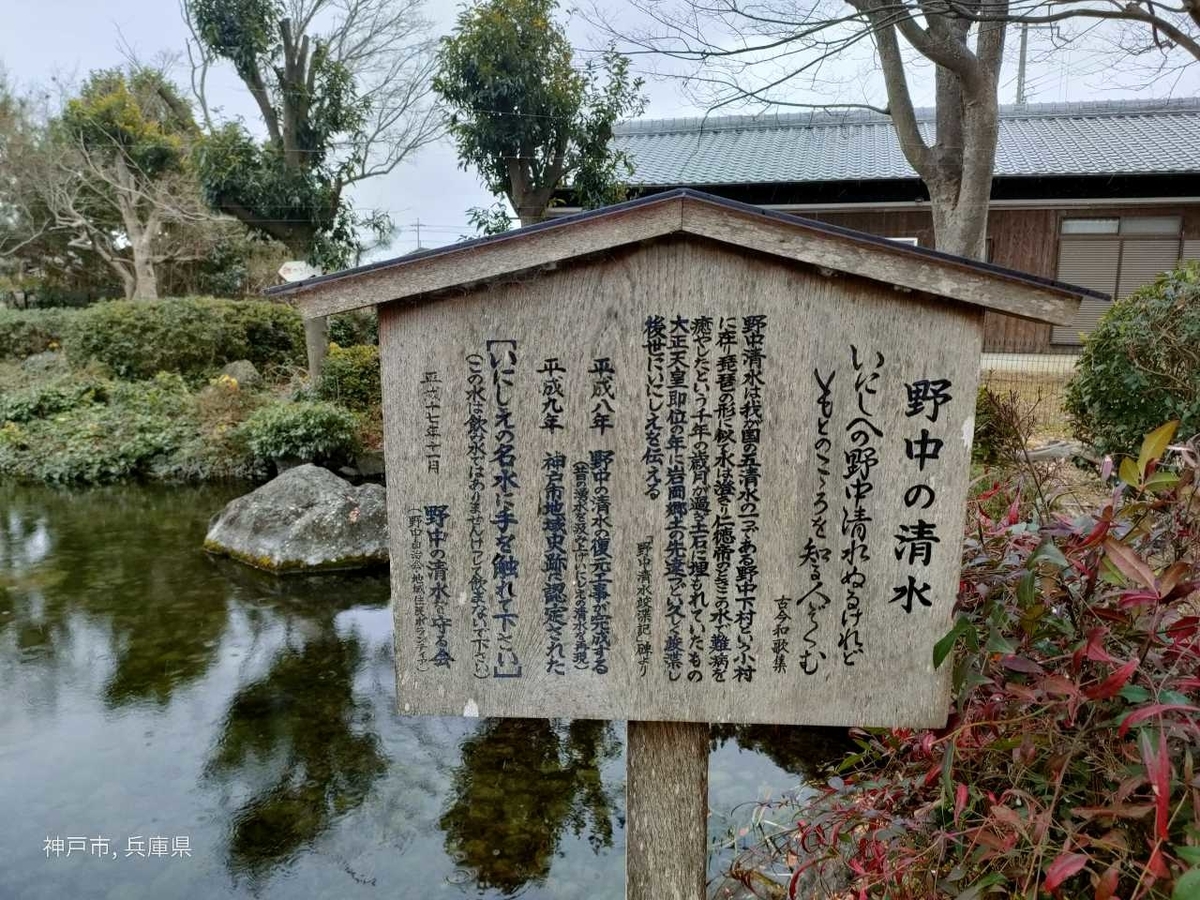 野中の清水
いにしへの野中清水ぬるけれど
もとのこゝろを知る人ぞくむ
古今和歌集
野中清水は我が国の五清水の一つである野中下村という小村
に在り琵琶の形に似水は澄り仁徳帝のときこの水で難病を
癒やしたという千年の歳月が過ぎ土石に埋もれていたもの
大正天皇即位の年に岩岡郷土の先達つどい父して浚渫し
後世にいにしえを伝える
「野中清水浚渫記」碑より
平成八年 野中の清水の復元工事が完成する
(昔の湧水を汲み上げいにしえの清水を再現)
平成九年 神戸市地域史跡に認定された
[いにしえの名水に手を触れて下さい]
(この水は飲み水ではありませんけっして飲まないで下さい)
平成十七年十一月 野中の清水を守る会
(野中自治会・地域住民ボランティア)
神戸市, 兵庫県